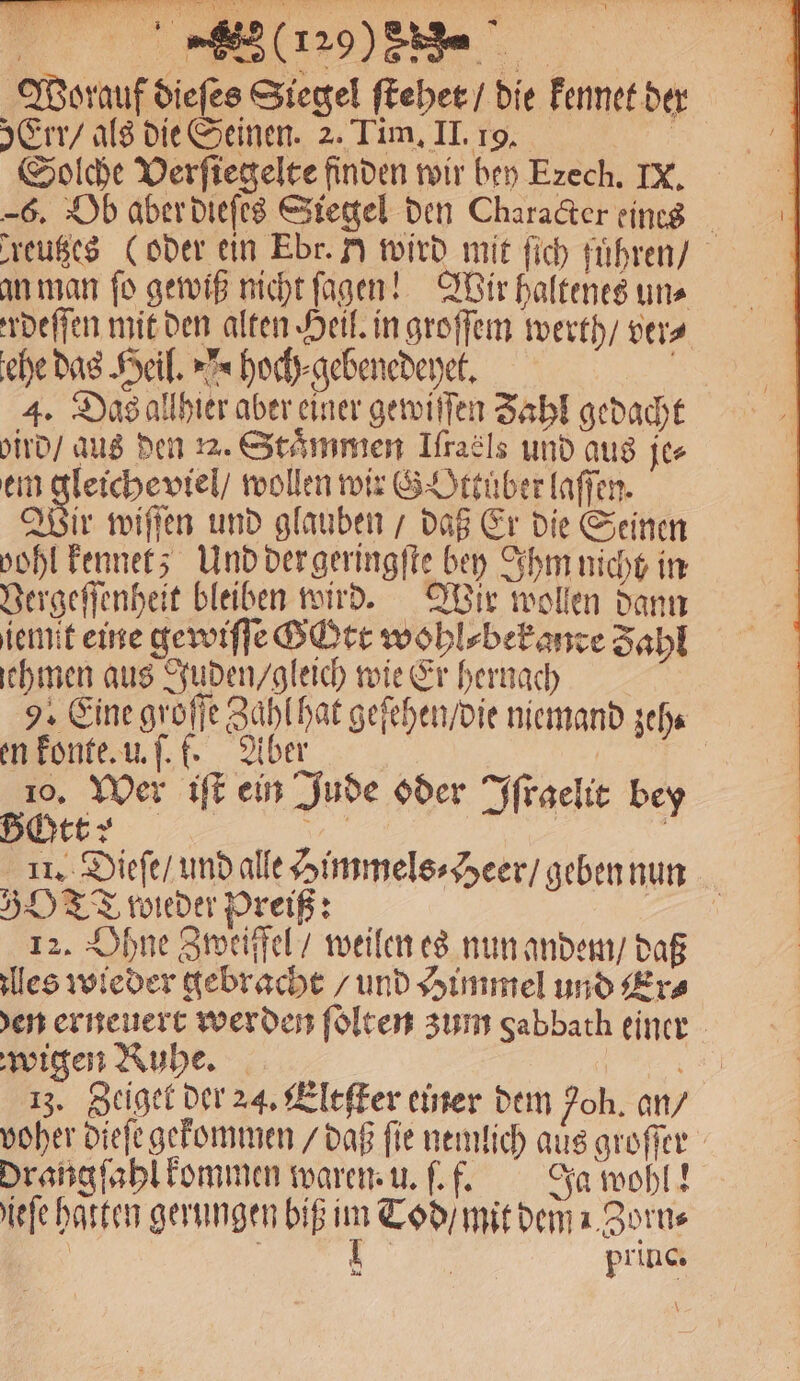 (129)
Worauf dieſes Siegel ſtehet / die kennet der
HErr / als die Seinen. 2. Tim. II. 19.
Solche Verſiegelte finden wir bey Ezech. IX.
-6. Ob aber dieſes Siegel den Character eines
Creutzes (oder ein Ebr. ת wird mit ſich führen /
an man ſo gewiß nicht ſagen! Wir haltenes un⸗
erdeſſen mit den alten Heil. in groſſem werth / ver⸗
ehe das Heil. ✠ hoch-gebenedeyet.
4. Das allhier aber einer gewiſſen Zahl gedacht
wird / aus den 12. Stämmen Iſraels und aus je⸗
em gleicheviel / wollen wir GOtt über laſſen.
Wir wiſſen und glauben / daß Er die Seinen
wohl kennet; Und der geringſte bey Ihm nicht in
Vergeſſenheit bleiben wird. Wir wollen dann
iemit eine gewiſſe GOtt wohl⸗bekante Zahl
ehmen aus Juden / gleich wie Er hernach
9. Eine groſſe Zahl hat geſehen / die niemand zeh⸗
en konte. u. ſ. f. Aber
10. Wer iſt ein Jude oder Iſraelit bey
GOtt?
11. Dieſe / und alle Himmels⸗Heer / geben nun
GOTT wieder Preiß:
12. Ohne Zweiffel / weilen es nun andem / daß
alles wieder gebracht / und Himmel und Er⸗
den erneuert werden ſolten zum Sabbath einer
ewigen Ruhe.
13. Zeiget der 24. Eltſter einer dem Joh. an /
woher dieſe gekommen / daß ſie nemlich aus groſſer
Drangſahl kommen waren. u. ſ. f. Ja wohl!
dieſe hatten gerungen biß im Tod / mit dem 1. Zorn⸗
I princ.